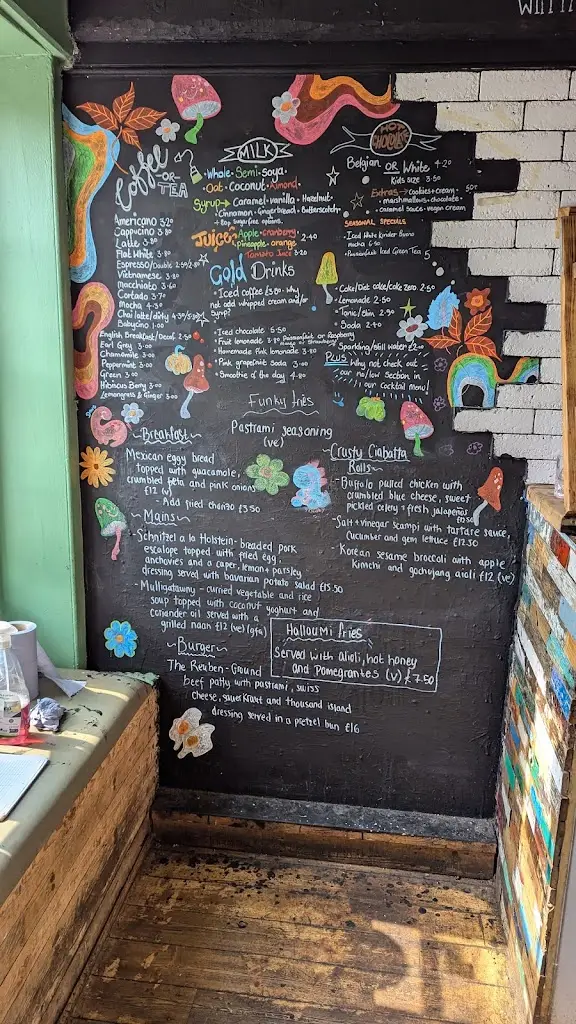 Coffee
OR
TEA
Americano 3.20
Cappucino 3.80
Latte 3.80
Flat White 3.80
Espresso/Double 2.50/2.80
Vietnamese 3.80
macchiato 3.60
Cortado 3.70
Mocha 4.30
Chai latte/dirty 4.30/5.30
Babycino 1.00
English Breakfast/Decaf 2.50
Earl Grey 3.00
Chamomile 3.00
Peppermint 3.00
Green 3.00
Hibiscus Berry 3.00
Lemongrass & Ginger 3.00
MILK
Whole · Semi · Soya ·
Oat · Coconut · Almond ·
Syrup → Caramel · vanilla · Hazelnut ·
Cinnamon · Gingerbread · Butterscotch
sugar free options
Juice Apple · cranberry
pineapple · orange 2.40
Tomato Juice 3.20
Cold Drinks
· Iced coffee £3.80 · Why
not add whipped cream and/or
syrup?
· Iced chocolate 5.50
· Fruit lemonade 3.80
· Homemade Pink lemonade 3.80
· Pink grapefruit Soda 3.00
· Smoothie of the day 4.80
HOT
CHOCOLATE
Belgian OR White 4.20
Kids size 3.50
Extras → Cookies + cream ·
50p
· marshmallows · chocolate ·
· caramel sauce · vegan cream
SEASONAL SPECIALS
Iced White Kinder Bueno
Mocha 6.50
Iced Green Tea 5
· Coke/Diet coke/coke Zero 2.50
· Lemonade 2.50
· Tonic/Slim 2.90
· Soda 2.40
Sparkling/still water £2
PLUS Why not check out
our no/low section in
our Cocktail menu!
Funky fries
Pastrami seasoning
(ve)
~Breakfast~
Mexican eggy bread
topped with guacamole,
crumbled feta and pink onions
£12 (v)
- Add fried chorizo £3.50
~Mains~
Schnitzel a la Holstein - breaded pork
escalope topped with fried egg,
anchovies and a caper, lemon + parsley
dressing served with bavarian potato salad £15.50
Mulligatawny - curried vegetable and rice
soup topped with coconut yoghurt and
coriander oil served with a
grilled naan £12 (ve)(gfa)
~Burger~
The Reuben - Ground
beef patty with pastrami, swiss
cheese, sauerkraut and thousand island
dressing served in a pretzel bun £16
Crusty Ciabatta
Rolls ~
- Buffalo pulled chicken with
crumbled blue cheese, sweet
pickled celery + fresh jalapeños
- Salt + vinegar scampi with tartare sauce,
Cucumber and gem lettuce £12.50
- Korean sesame broccoli with apple
kimchi and gochujang aioli £12 (ve)
Halloumi fries
Served with alioli, hot honey
and Pomegrantes (v) £7.50